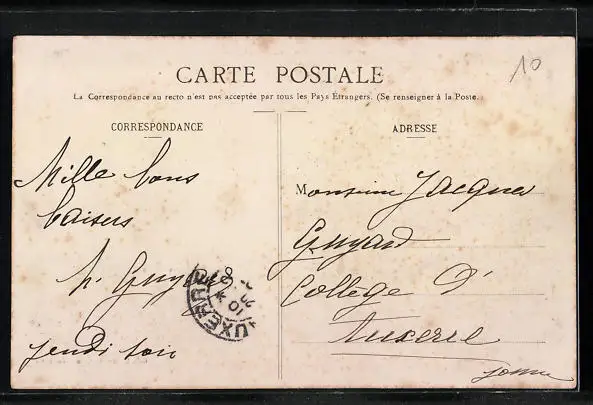 10
CARTE POSTALE
La Correspondance au recto n'est pas acceptée par tous les Pays Étrangers. (Se renseigner à la Poste.)
CORRESPONDANCE
Mille bons
baisers
h. Guyard
jeudi soir
ADRESSE
Monsieur Jacques
Guyard
Collège d'
Auxerre
Yonne
AUXERRE